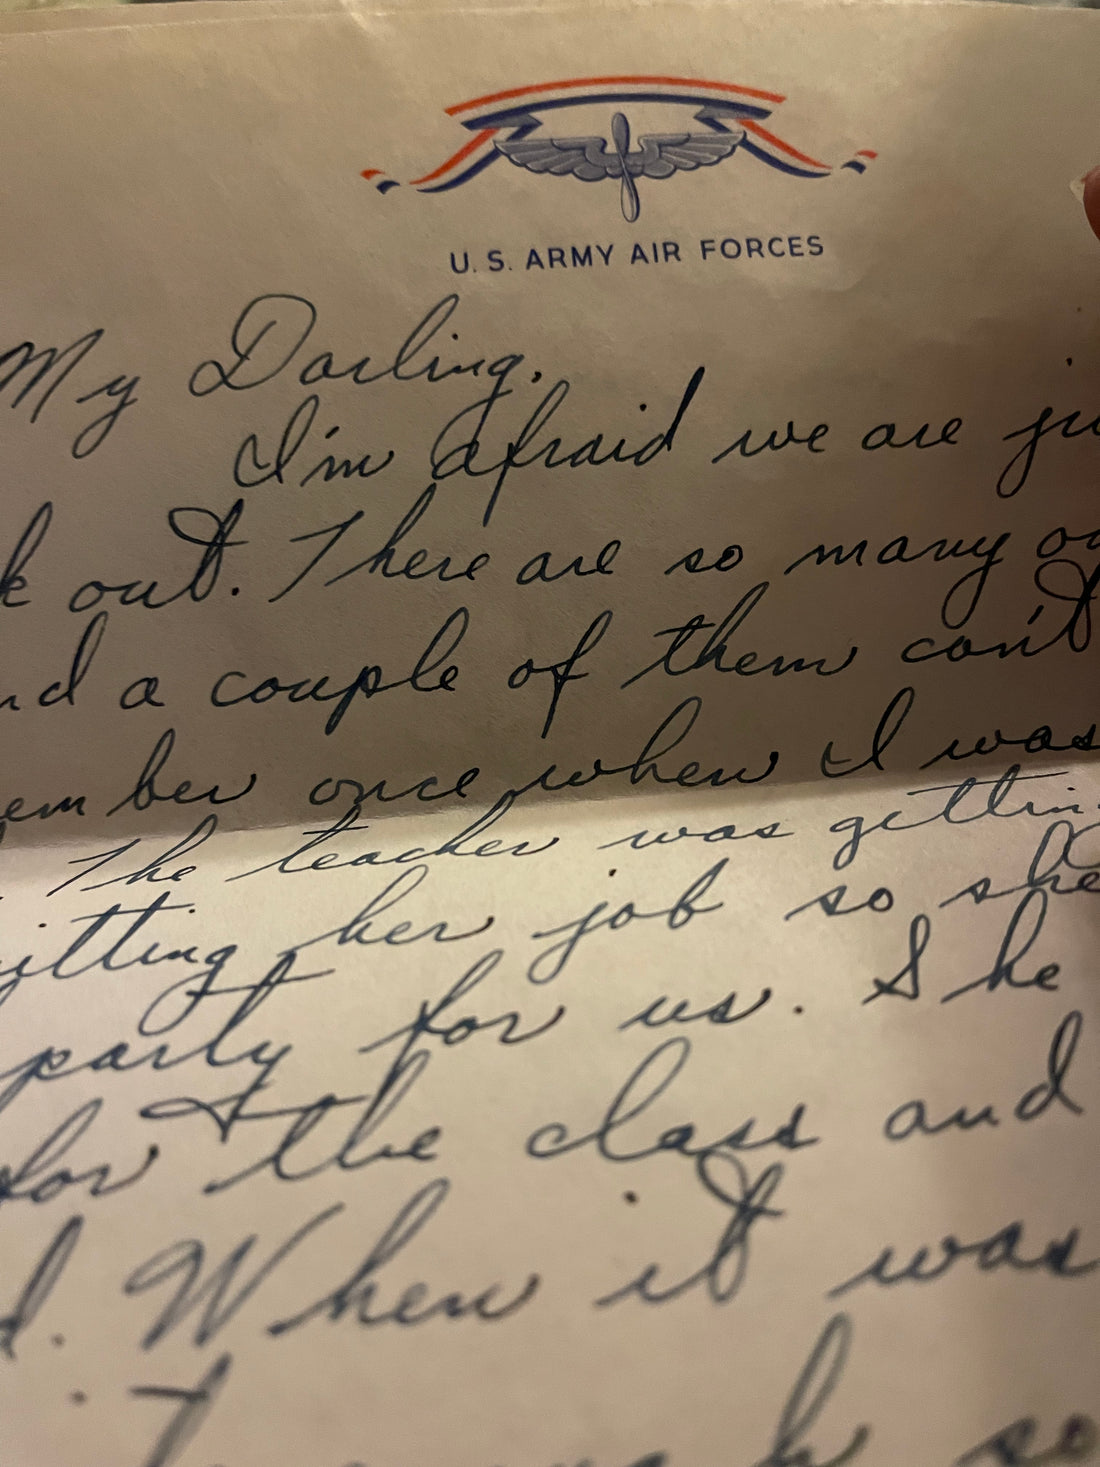 U. S. ARMY AIR FORCES
My Darling,
I'm afraid we are
out. There are so many
a couple of them can't
once when I was
The teacher was
her job so she
party for us. She
for the class and
When it was
so